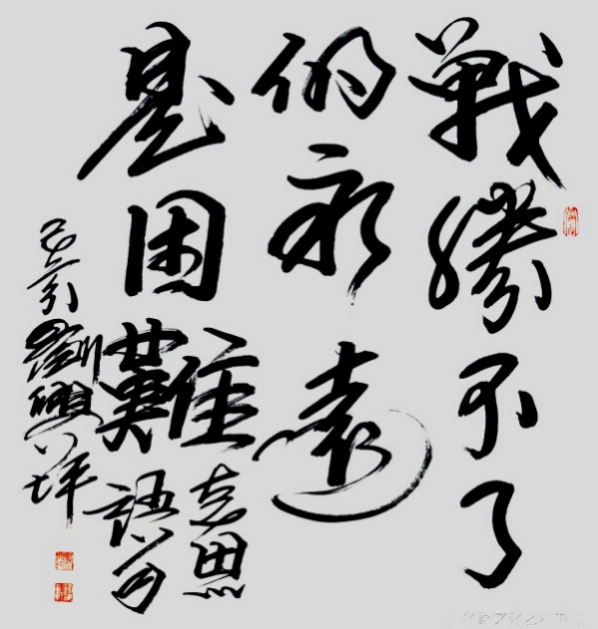 戰勝不了
的永遠
是困難
志思
語
己亥劉興